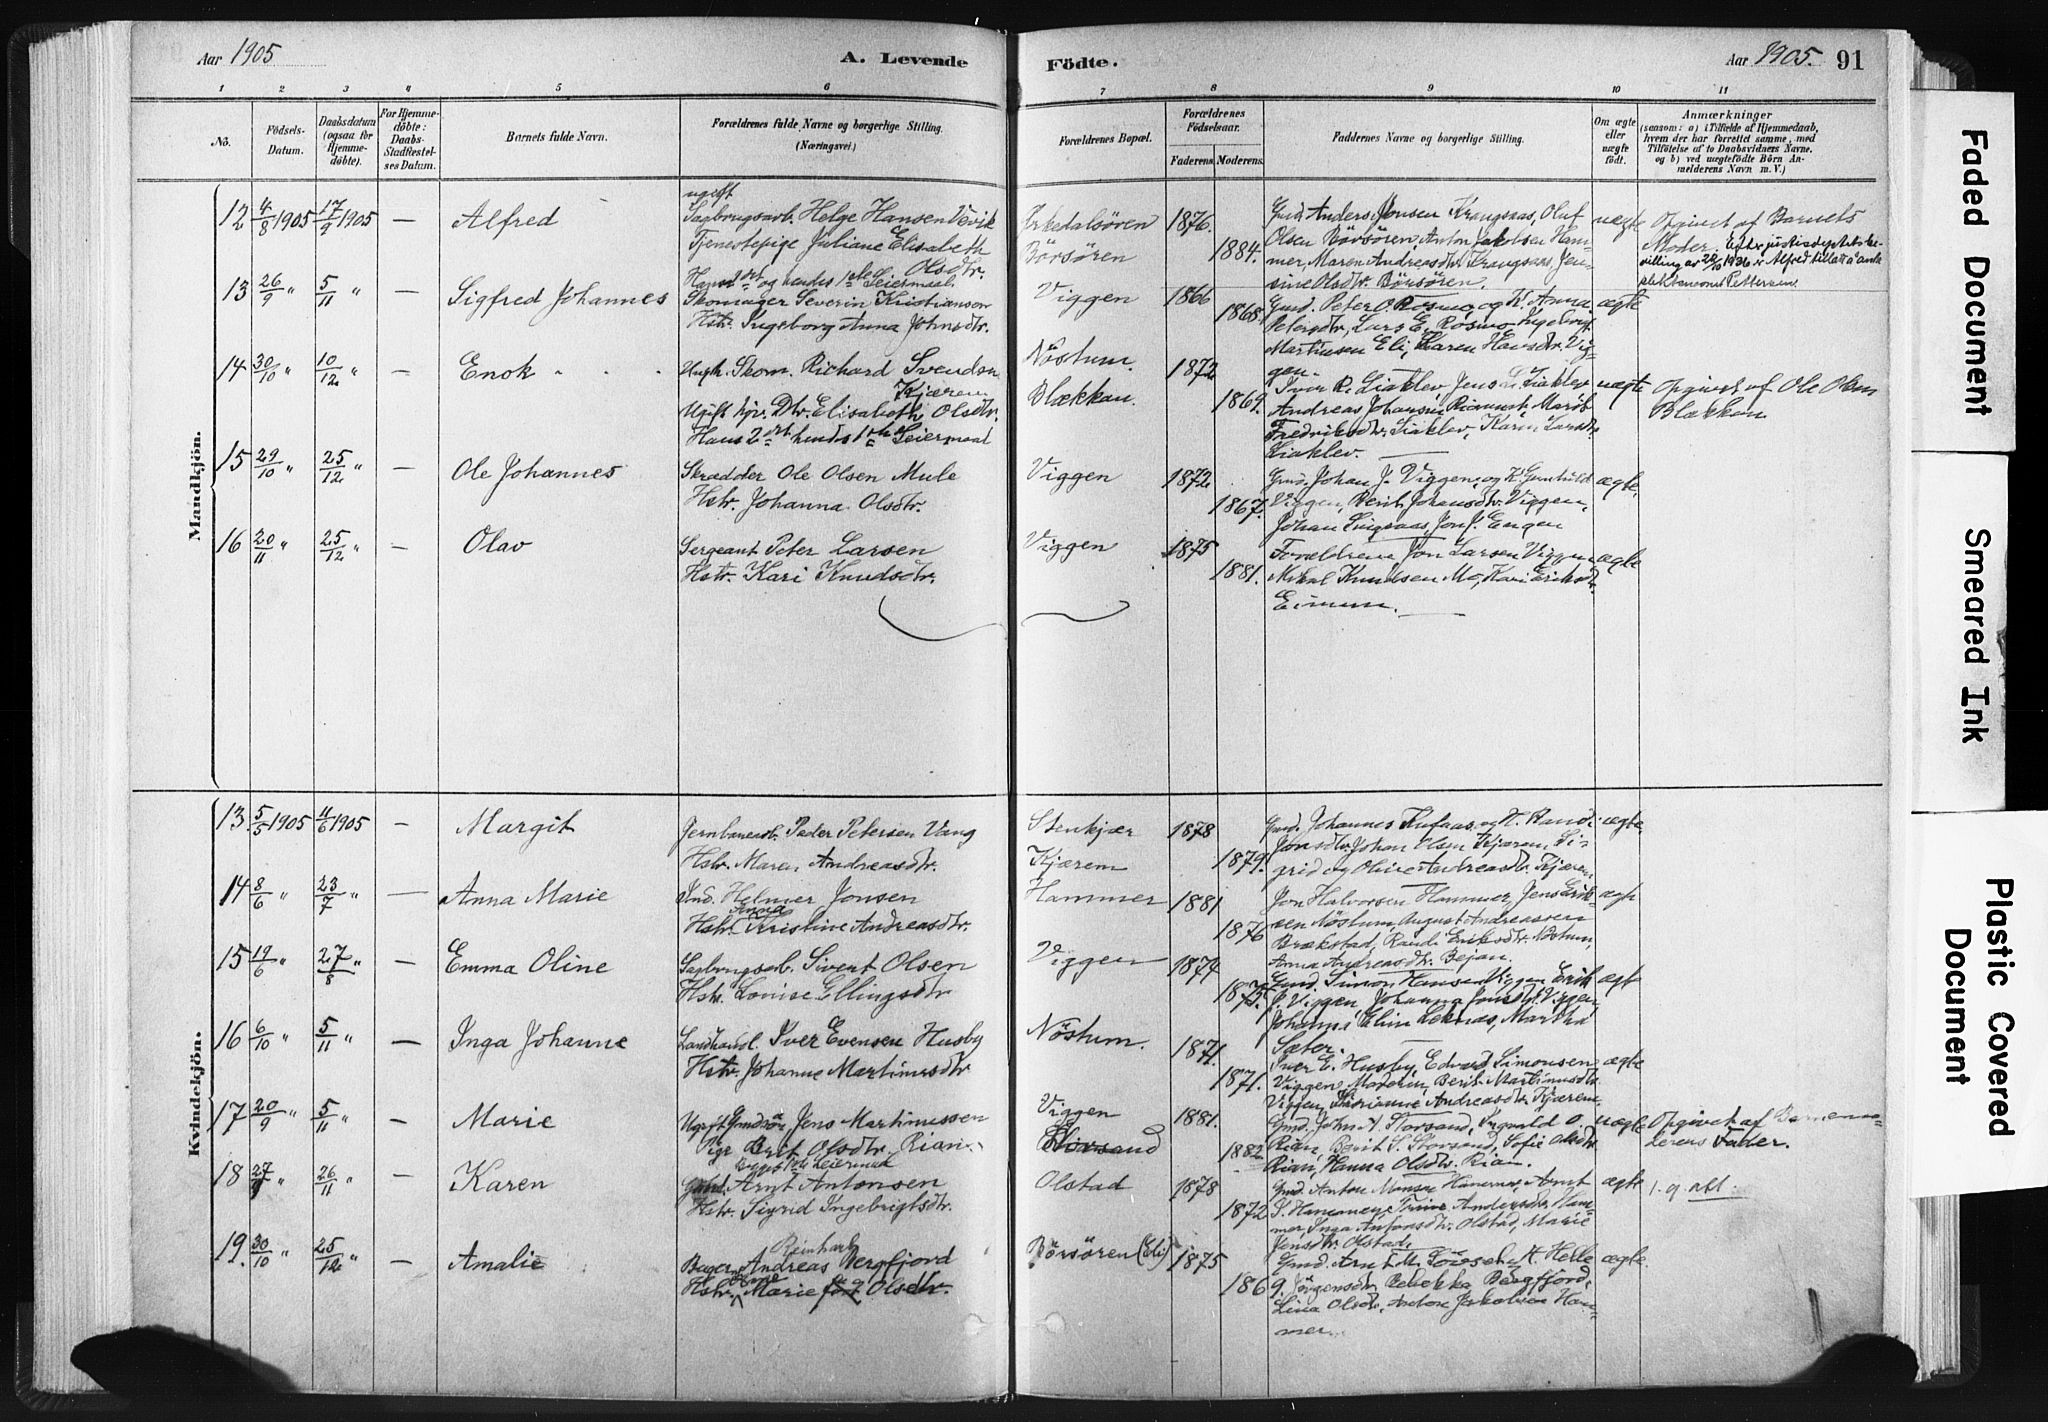 Aar 1905
A. Levende
Födte.
Aar 1905.
91
1 2 3 4 5 6 7 8 9 10 11
No.
Födsels-
Datum.
Daabsdatum
(ogsaa for
Hjemme-
döbte).
For Hjemme-
döbte:
Daabs-
Stadfæstel-
ses Datum.
Barnets fulde Navn.
Forældrenes fulde Navne og borgerlige Stilling.
(Næringsvei.)
Forældrenes Bopæl.
Forældrenes
Födselsaar.
Faderens.
Moderens.
Faddernes Navne og borgerlige Stilling.
Om ægte
eller
uægte
födt.
Anmærkninger
(saasom: a) i Tilfælde af Hjemmedaab,
hvem der har forrettet samme, med
Tilföielse af to Daabsvidners Navne.
og b) ved uægtefödte Börn An-
melderens Navn m. V.)
Mandkjön.
12 4/8 1905 17/9 1905 — Alfred
ugift
Sagbrugsarb. Helge Hansen Vevik
Tjenestepige Juliane Elisabeth
Olsdtr.
Orkedalsören
Börsören
1876.
1884.
Gmd. Anders Jonsen Krangsaas, Oluf
Olsen Börsören, Anton Jakobsen Ham-
mer, Maren Andreasdtr. Krangsaas, Jen-
sine Olsdtr. Börsören.
uægte
Opgivet af Barnets
Moder.
13 26/9 " 5/11 " — Sigfred Johannes
Skomager Severin Kristiansen
Hstr. Ingeborg Anna Johnsdtr.
Viggen
1866
1868.
Gmd. Peter O. Rosmo og K. Anna
Petersdtr, Lars E. Rosmo, Ingebrigt
Martinsen Eli, Karen Hansdtr. Vig-
gen.
ægte
14 30/10 " 10/12 " — Enok
Ungk. Skom. Richard Svendsen
Kjærem
Ugift Gjv. Dtr. Elisabeth Olsdtr.
Hans 2det hendes 1ste Leiermaal
Nöstum.
Blækkan.
1872
1869.
Iver R. Liaklev, Jens L. Liaklev
Andreas Johansen
Fredriksdtr. Liaklev, Karen Larsdtr.
Liaklev.
uægte
Opgivet af Ole Olsen
Blækkan
15 29/10 " 25/12 " — Ole Johannes
Skrædder Ole Olsen Mule
Hstr. Johanna Olsdtr.
Viggen
1872
1867.
Gmd. Johan J. Viggen, og K. Gunhild
Viggen, Berit Johansdtr. Viggen,
Johan Snigsaas, Jon J. Engen
ægte.
16 20/11 " 25/12 " — Olav
Sergeant Peter Larsen
Hstr. Kari Knudsdtr.
Viggen
1875
1881.
Forældrene, Jon Larsen Viggen
Mikal Knudsen Mo, Kari Eriksdtr.
Eimun.
ægte
Kvindekjön.
13. 5/5 1905 11/6 1905 — Margit
Jernbanearb. Peder Petersen Vang
Hstr. Maren Andreasdtr.
Stenkjær
Kjærem
1878
1879.
Gmd. Johannes Tufaas, og K. Randi
Jonsdtr. Johan Olsen Kjærem, Si-
grid og Oline Andreasdtr. Kjærem
ægte
14 8/6 " 23/7 " — Anna Marie
Ind. Helmer Jonsen
Anna
Hstr. Kristine Andreasdtr.
Hammer
1881
1876
Jon Halvorsen Hammer, Jens Erik-
sen Nöstum, August Andreassen
Brækstad, Randi Eriksdtr. Nöstum,
Anna Andreasdtr. Bejan.
ægte
15 19/6 " 27/8 " — Emma Oline
Sagbrugsarb. Sivert Olsen
Hstr. Lovise Ellingsdtr
Viggen
1874
1875.
Gmd. Simon Hansen Viggen, Erik
J. Viggen, Johanna Jonsdtr. Viggen,
Johannes Elin Leknas, Martha
Sæter.
ægte
16 6/10 " 5/11 " — Inga Johanne
Landhandl. Iver Evensen Husby
Hstr. Johanne Martinusdtr
Nöstum.
1871.
1871.
Iver E. Husby, Edvard Simonsen
Viggen, Moderen, Berit Martinusdtr.
Viggen, Andreasdtr. Kjærem.
ægte
17 20/9 " 5/11 " — Marie
Ugift Gmdsön, Jens Martinussen
Pige Berit Olsdtr. Rian.
Begges 1ste Leiermaal
Viggen
Storsand
1881.
1882
Gmd. John A. Storsand, Ingvald O.
Rian, Berit S. Storsand, Sofie Olsdtr.
Rian, Hanna Olsdtr. Rian.
uægte
Opgivet af Barnemo-
derens Fader.
18 27/9 " 26/11 " — Karen
Gmd. Arnt Antonsen
Hstr. Sigrid Ingebrigtsdtr.
Olstad
1878
1872
Gmd. Anton Monsen Hanemo, Arnt
S. Hanemo, Trine Andersdtr. Ham-
mer, Inga Antonsdtr. Olstad, Marie
Jensdtr. Olstad.
ægte
19. 30/10 " 25/12 " — Amalie
Reinhart
Bager Andreas Bergfjord
Hstr. Marie Olsdtr.
Börsören (Eli)
1875
1869.
Gmd. Arnt M. K. Helle
Jörgensdtr. Rebekka Bergfjord,
Lina Olsdtr. Anton Jakobsen Ham-
mer.
ægte
Faded Document
Smeared Ink
Plastic Covered
Document